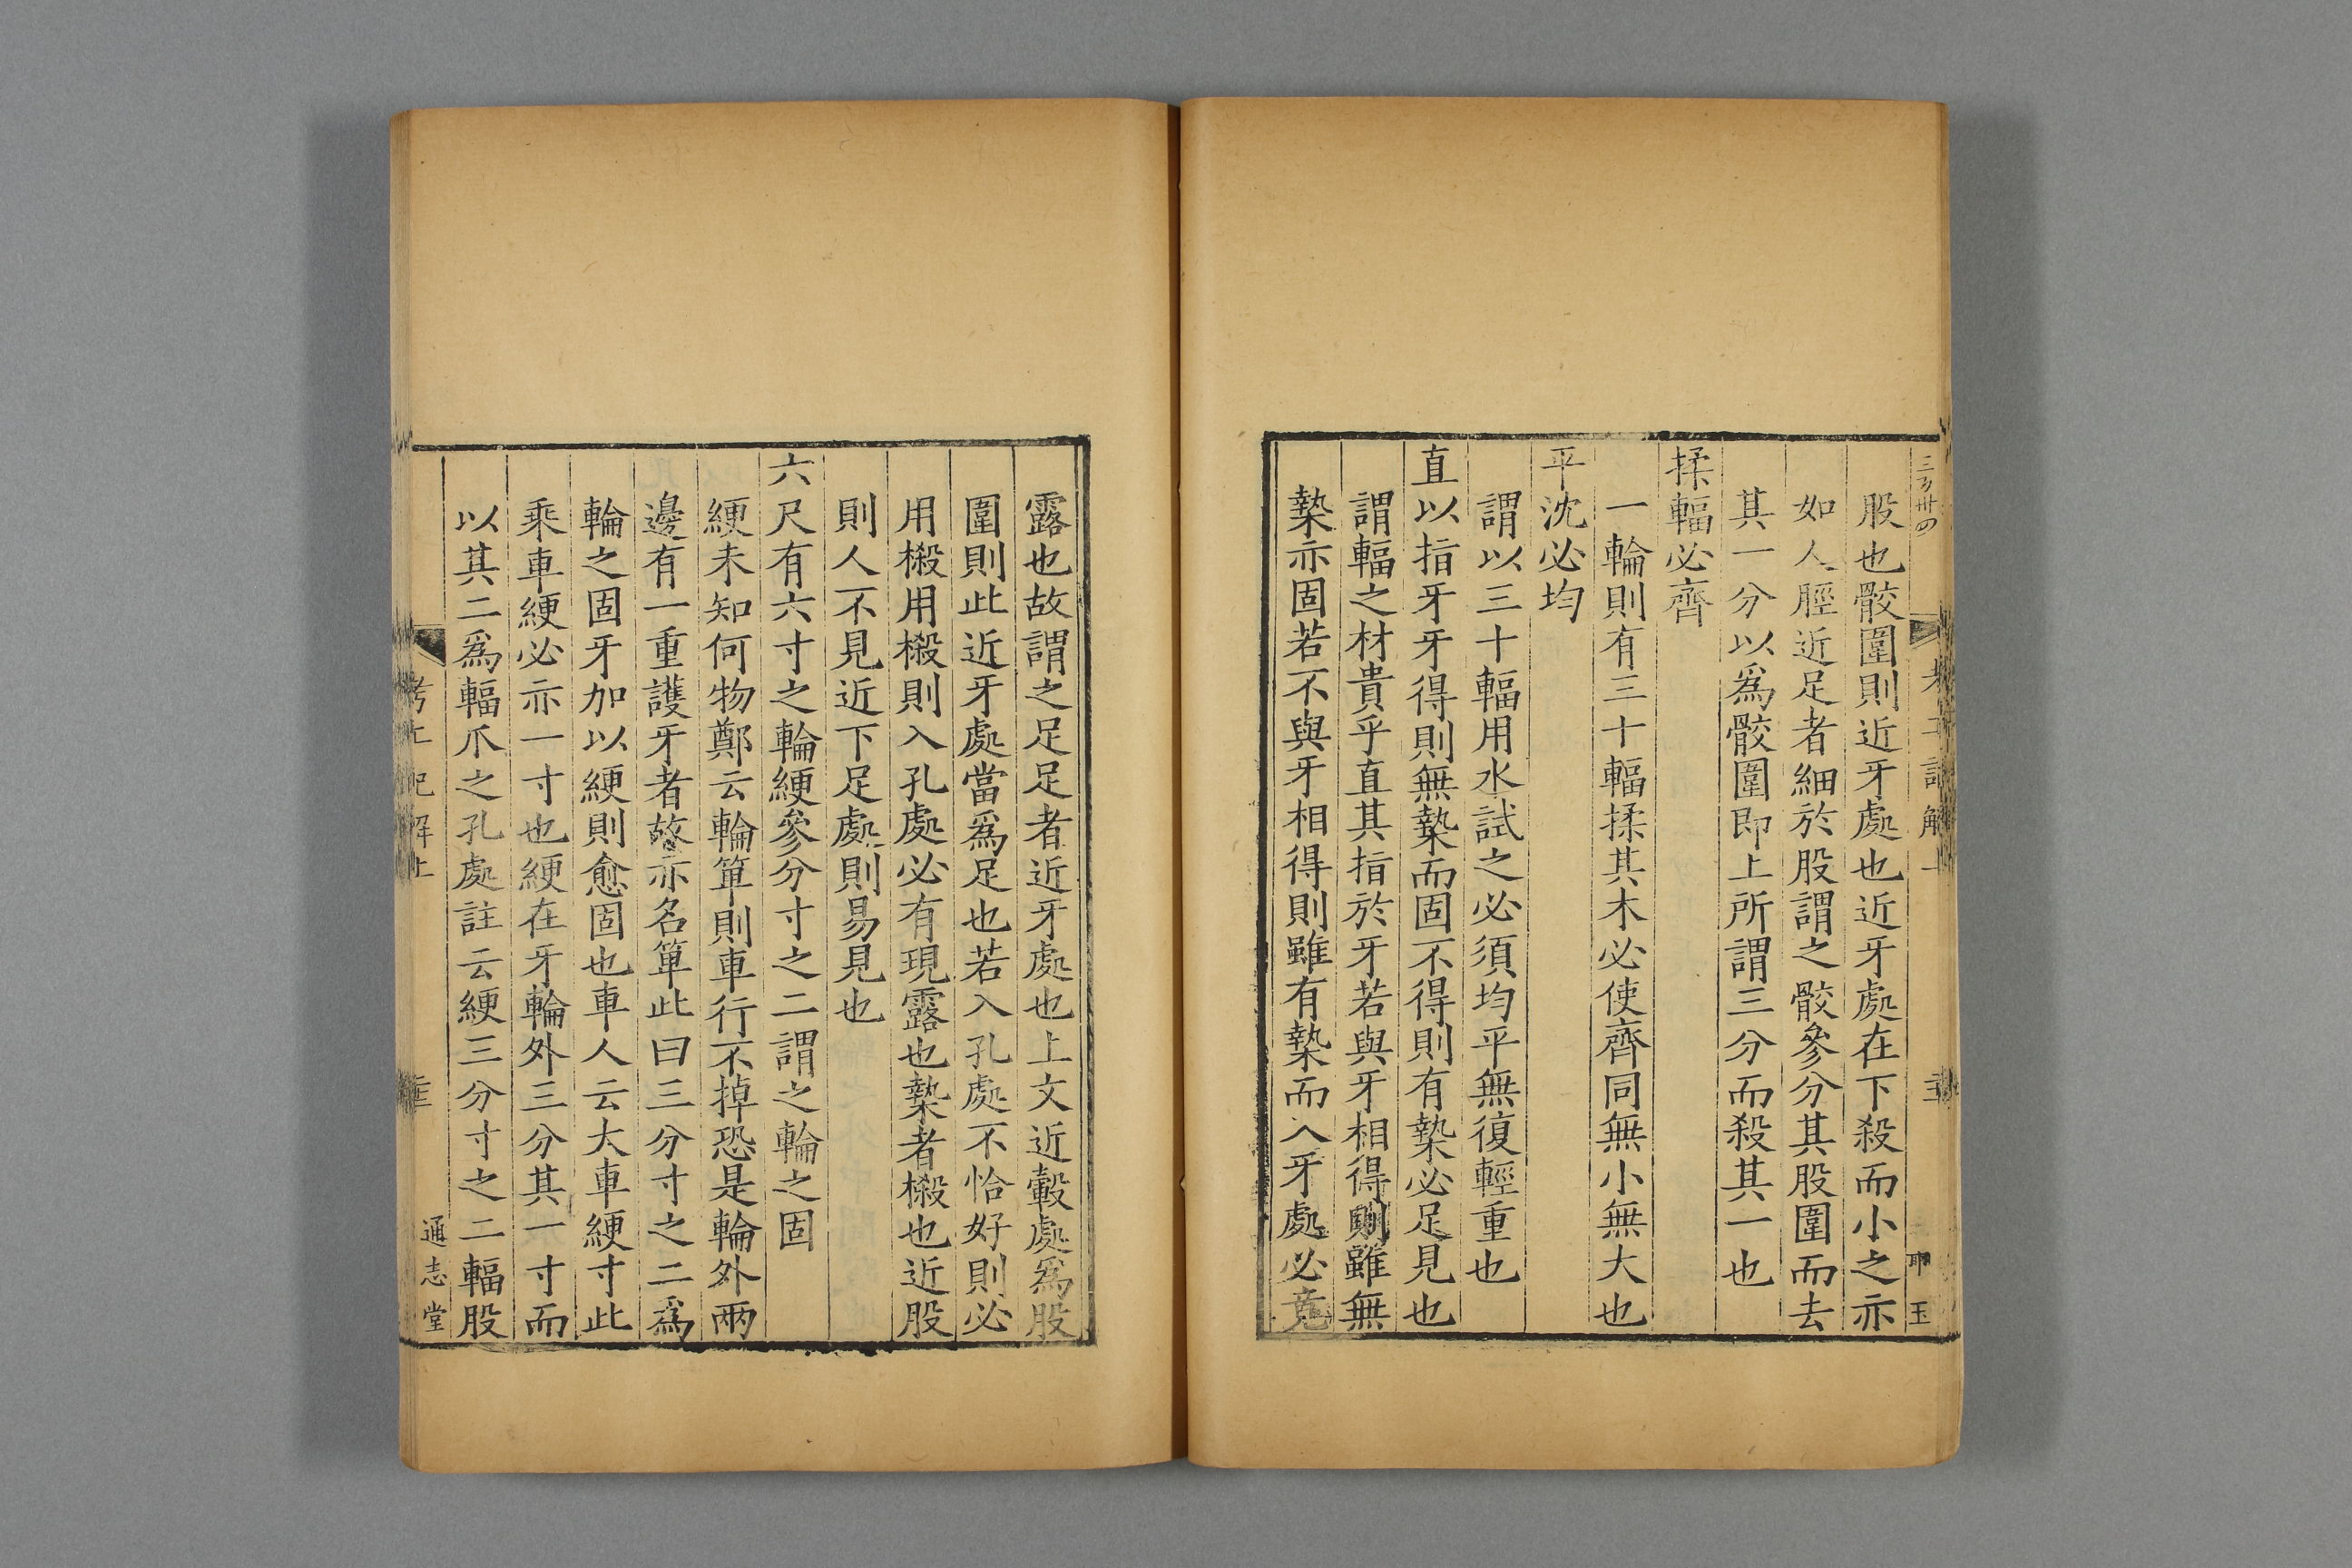 股也骹圍則近牙處也近牙處在下殺而小之亦
如人脛近足者細於股謂之骹參分其股圍而去
其一分以爲骹圍即上所謂三分而殺其一也
揉輻必齊
一輪則有三十輻揉其木必使齊同無小無大也
平沈必均
謂以三十輻用水試之必須均平無復輕重也
直以指牙牙得則無槷而固不得則有槷必足見也
謂輻之材貴乎直其指於牙若與牙相得則雖無
槷亦固若不與牙相得則雖有槷而入牙處必竟
露也故謂之足足者近牙處也上文近轂處爲股
圍則此近牙處當爲足也若入孔處不恰好則必
用樧用樧則入孔處必有現露也槷者樧也近股
則人不見近下足處則易見也
六尺有六寸之輪綆參分寸之二謂之輪之固
綆未知何物鄭云輪箄則車行不掉恐是輪外兩
邊有一重護牙者故亦名箄此曰三分寸之二爲
輪之固牙加以綆則愈固也車人云大車綆寸此
乘車綆必亦一寸也綆在牙輪外三分其一寸而
以其二爲輻爪之孔處註云綆三分寸之二輻股
考工記解上
通志堂